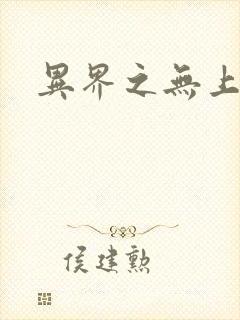 異界之無上
侯建勲